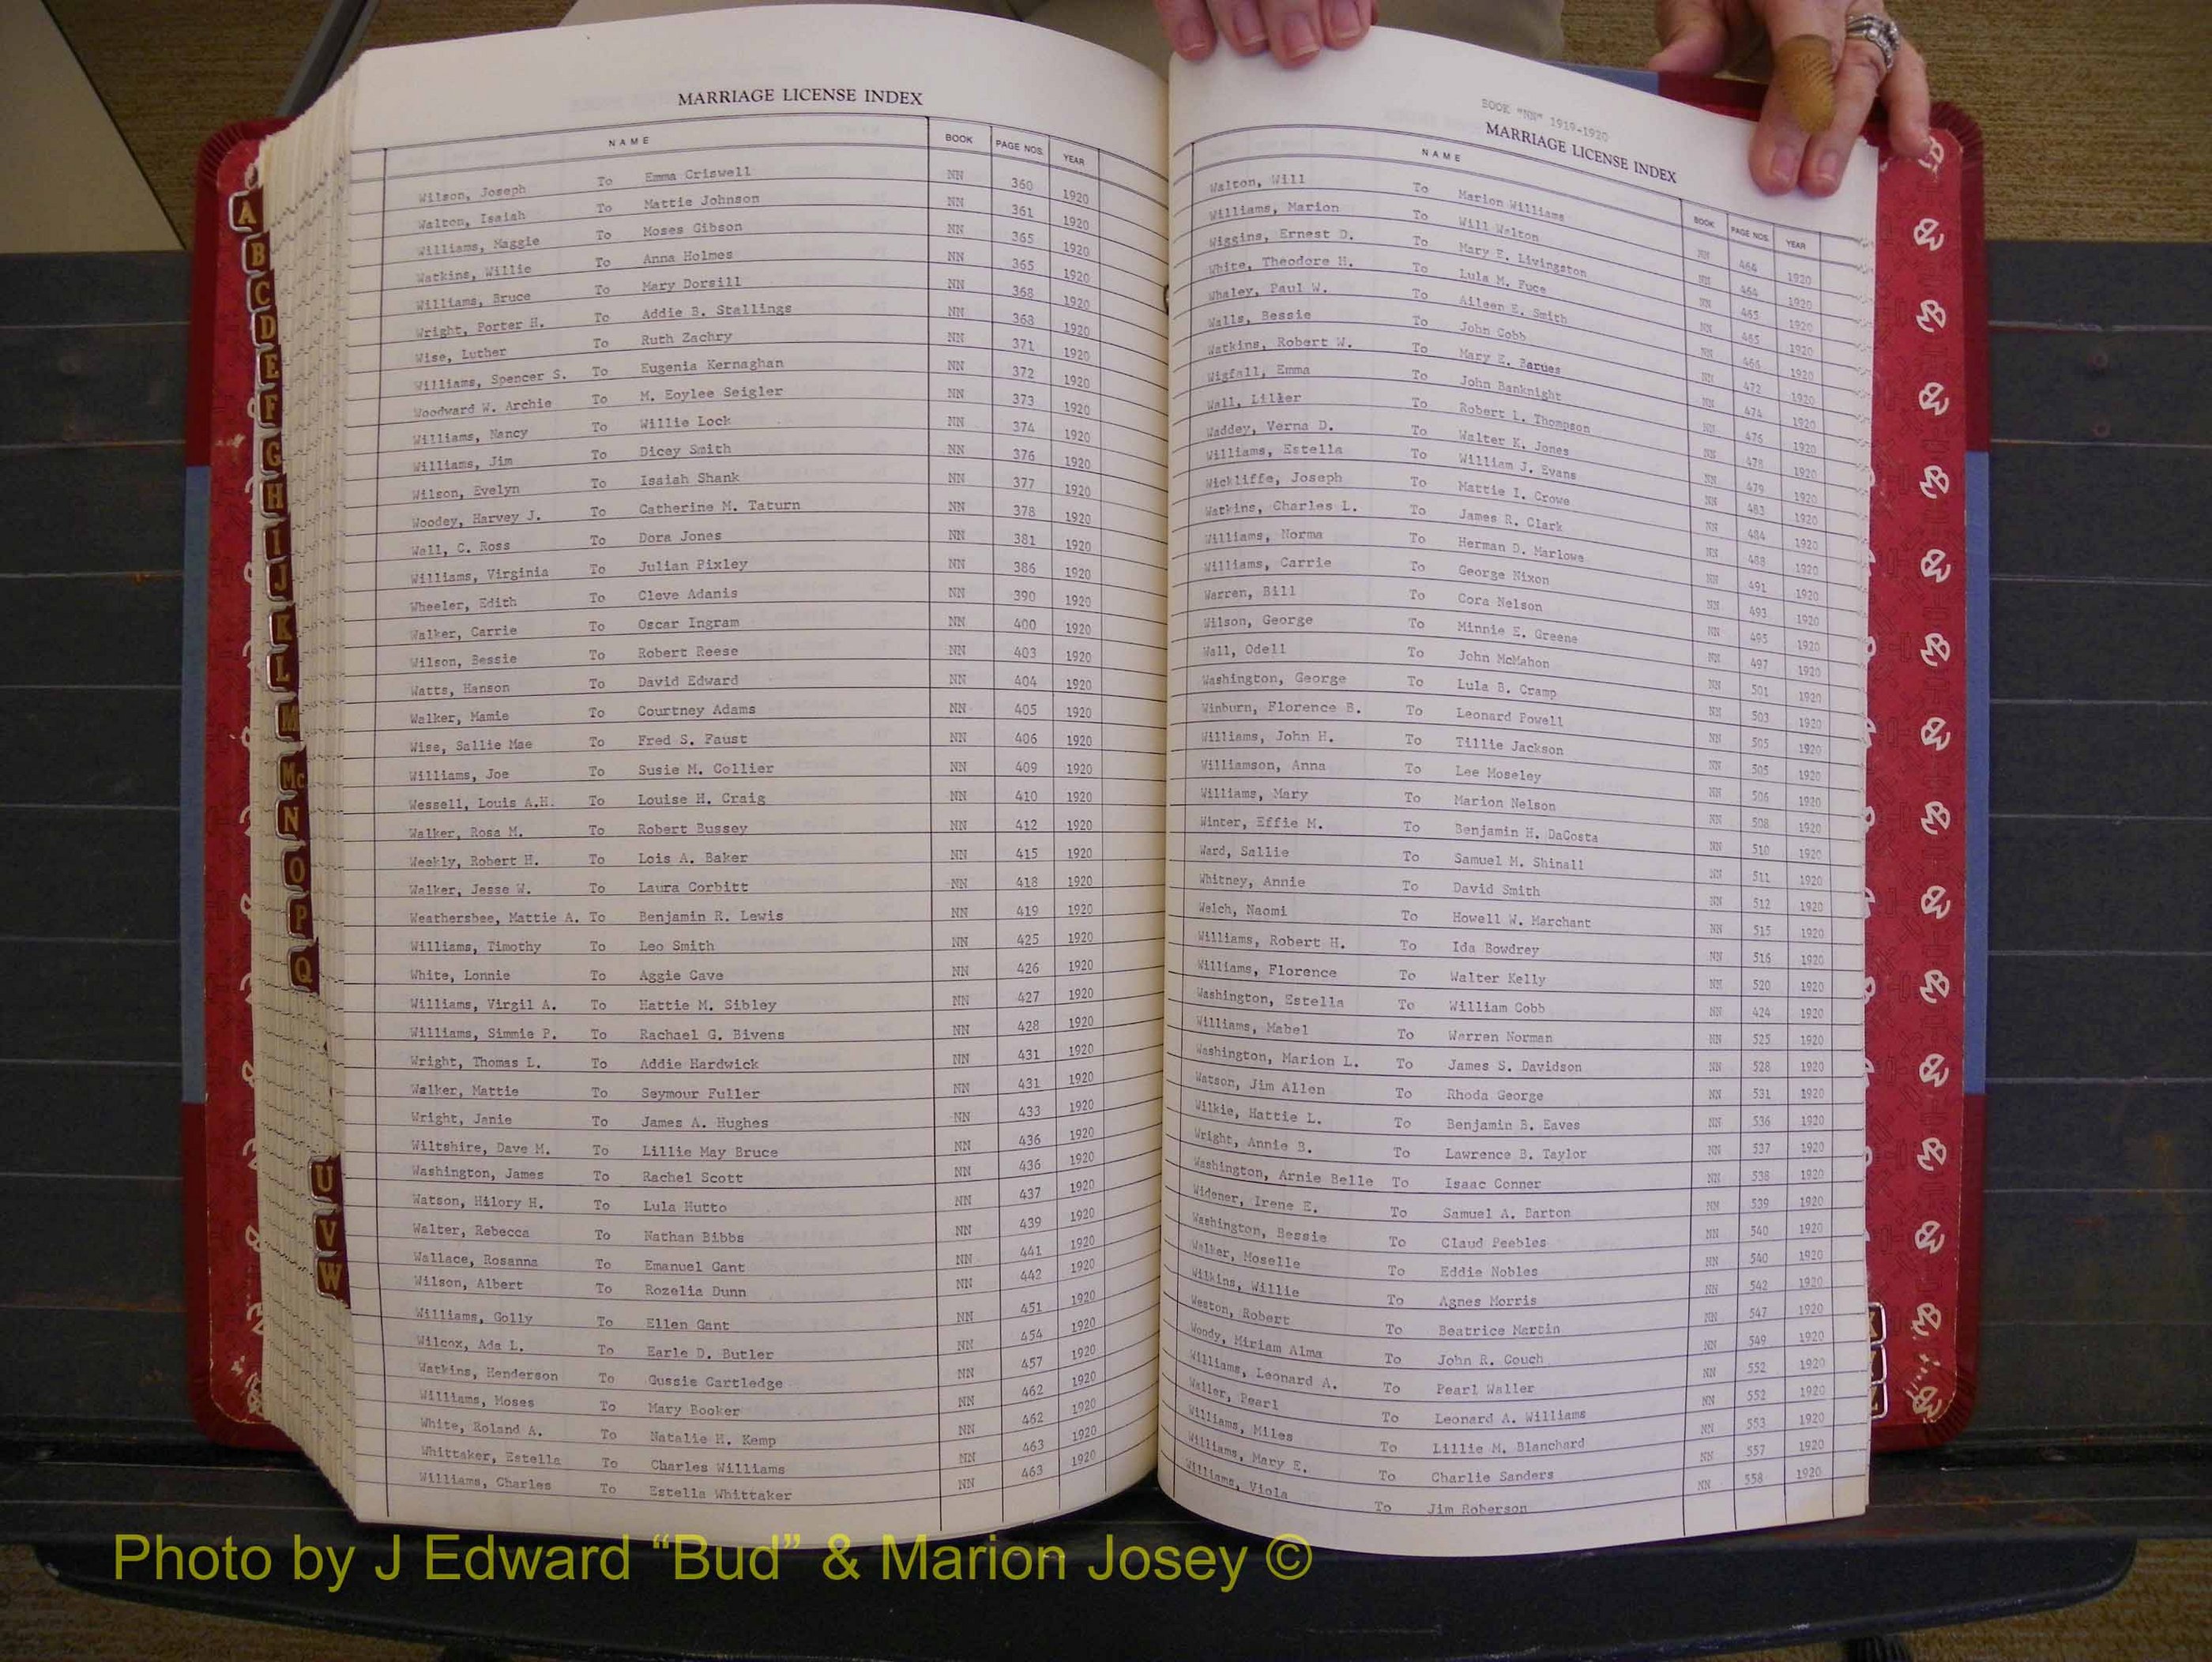 MARRIAGE LICENSE INDEX
NAME BOOK PAGE NOS. YEAR
Wilson, Joseph To Emma Criswell NN 360 1920
Walton, Isaiah To Mattie Johnson NN 361 1920
Williams, Maggie To Moses Gibson NN 365 1920
Watkins, Willie To Anna Holmes NN 365 1920
Williams, Bruce To Mary Dorsill NN 368 1920
Wright, Porter H. To Addie B. Stallings NN 368 1920
Wise, Luther To Ruth Zachry NN 371 1920
Williams, Spencer S. To Eugenia Kernaghan NN 372 1920
Woodward W. Archie To M. Eoylee Seigler NN 373 1920
Williams, Nancy To Willie Lock NN 374 1920
Williams, Jim To Dicey Smith NN 376 1920
Wilson, Evelyn To Isaiah Shank NN 377 1920
Woodey, Harvey J. To Catherine M. Taturn NN 378 1920
Wall, C. Ross To Dora Jones NN 381 1920
Williams, Virginia To Julian Pixley NN 386 1920
Wheeler, Edith To Cleve Adanis NN 390 1920
Walker, Carrie To Oscar Ingram NN 400 1920
Wilson, Bessie To Robert Reese NN 403 1920
Watts, Hanson To David Edward NN 404 1920
Walker, Mamie To Courtney Adams NN 405 1920
Wise, Sallie Mae To Fred S. Faust NN 406 1920
Williams, Joe To Susie M. Collier NN 409 1920
Wessell, Louis A.H. To Louise H. Craig NN 410 1920
Walker, Rosa M. To Robert Bussey NN 412 1920
Weekly, Robert H. To Lois A. Baker NN 415 1920
Walker, Jesse W. To Laura Corbitt NN 418 1920
Weathersbee, Mattie A. To Benjamin R. Lewis NN 419 1920
Williams, Timothy To Leo Smith NN 425 1920
White, Lonnie To Aggie Cave NN 426 1920
Williams, Virgil A. To Hattie M. Sibley NN 427 1920
Williams, Simmie P. To Rachael G. Bivens NN 428 1920
Wright, Thomas L. To Addie Hardwick NN 431 1920
Walker, Mattie To Seymour Fuller NN 431 1920
Wright, Janie To James A. Hughes NN 433 1920
Wiltshire, Dave M. To Lillie May Bruce NN 436 1920
Washington, James To Rachel Scott NN 436 1920
Watson, Hilory H. To Lula Hutto NN 437 1920
Walter, Rebecca To Nathan Bibbs NN 439 1920
Wallace, Rosanna To Emanuel Gant NN 441 1920
Wilson, Albert To Rozelia Dunn NN 442 1920
Williams, Golly To Ellen Gant NN 451 1920
Wilcox, Ada L. To Earle D. Butler NN 454 1920
Watkins, Henderson To Gussie Cartledge NN 457 1920
Williams, Moses To Mary Booker NN 462 1920
White, Roland A. To Natalie H. Kemp NN 462 1920
Whittaker, Estella To Charles Williams NN 463 1920
Williams, Charles To Estella Whittaker NN 463 1920
BOOK "NN" 1919-1920
MARRIAGE LICENSE INDEX
NAME BOOK PAGE NOS. YEAR
Walton, Will To Marion Williams NN 464 1920
Williams, Marion To Will Walton NN 464 1920
Wiggins, Ernest D. To Mary E. Livingston NN 465 1920
White, Theodore H. To Lula M. Fuce NN 465 1920
Whaley, Paul W. To Aileen E. Smith NN 466 1920
Walls, Bessie To John Cobb NN 472 1920
Watkins, Robert W. To Mary E. Barues NN 474 1920
Wigfall, Emma To John Banknight NN 476 1920
Wall, Liller To Robert L. Thompson NN 478 1920
Waddey, Verna D. To Walter K. Jones NN 479 1920
Williams, Estella To William J. Evans NN 483 1920
Wickliffe, Joseph To Mattie I. Crowe NN 484 1920
Watkins, Charles L. To James R. Clark NN 488 1920
Williams, Norma To Herman D. Marlowe NN 491 1920
Williams, Carrie To George Nixon NN 493 1920
Warren, Bill To Cora Nelson NN 495 1920
Wilson, George To Minnie E. Greene NN 497 1920
Wall, Odell To John McMahon NN 501 1920
Washington, George To Lula B. Cramp NN 503 1920
Winburn, Florence B. To Leonard Powell NN 505 1920
Williams, John H. To Tillie Jackson NN 505 1920
Williamson, Anna To Lee Moseley NN 506 1920
Williams, Mary To Marion Nelson NN 508 1920
Winter, Effie M. To Benjamin H. DaCosta NN 510 1920
Ward, Sallie To Samuel M. Shinall NN 511 1920
Whitney, Annie To David Smith NN 512 1920
Welch, Naomi To Howell W. Marchant NN 515 1920
Williams, Robert H. To Ida Bowdrey NN 516 1920
Williams, Florence To Walter Kelly NN 520 1920
Washington, Estella To William Cobb NN 424 1920
Williams, Mabel To Warren Norman NN 525 1920
Washington, Marion L. To James S. Davidson NN 528 1920
Watson, Jim Allen To Rhoda George NN 531 1920
Wilkie, Hattie L. To Benjamin B. Eaves NN 536 1920
Wright, Annie B. To Lawrence B. Taylor NN 537 1920
Washington, Arnie Belle To Isaac Conner NN 538 1920
Widener, Irene E. To Samuel A. Barton NN 539 1920
Washington, Bessie To Claud Peebles NN 540 1920
Walker, Moselle To Eddie Nobles NN 540 1920
Wilkins, Willie To Agnes Morris NN 542 1920
Weston, Robert To Beatrice Martin NN 547 1920
Woody, Miriam Alma To John R. Couch NN 549 1920
Williams, Leonard A. To Pearl Waller NN 552 1920
Waller, Pearl To Leonard A. Williams NN 552 1920
Williams, Miles To Lillie M. Blanchard NN 553 1920
Williams, Mary E. To Charlie Sanders NN 557 1920
Williams, Viola To Jim Roberson NN 558 1920
A
B
C
D
E
F
G
H
I
J
K
L
M
Mc
N
O
P
Q
U
V
W
Photo by J Edward “Bud” & Marion Josey ©